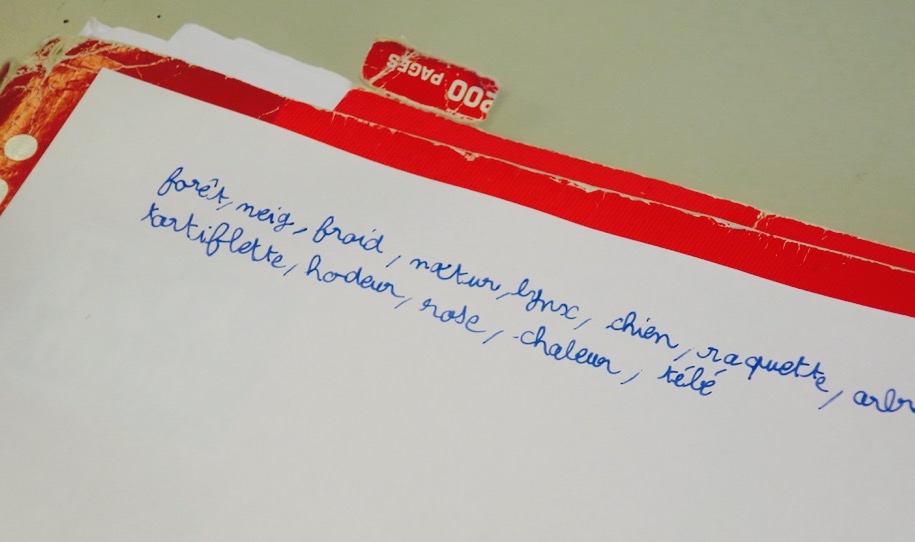 200 PAGES
forêt, neig, froid, nœtur, lynx, chien, raquette, arbr
tartiflette, hodeur, rose, chaleur, tébé